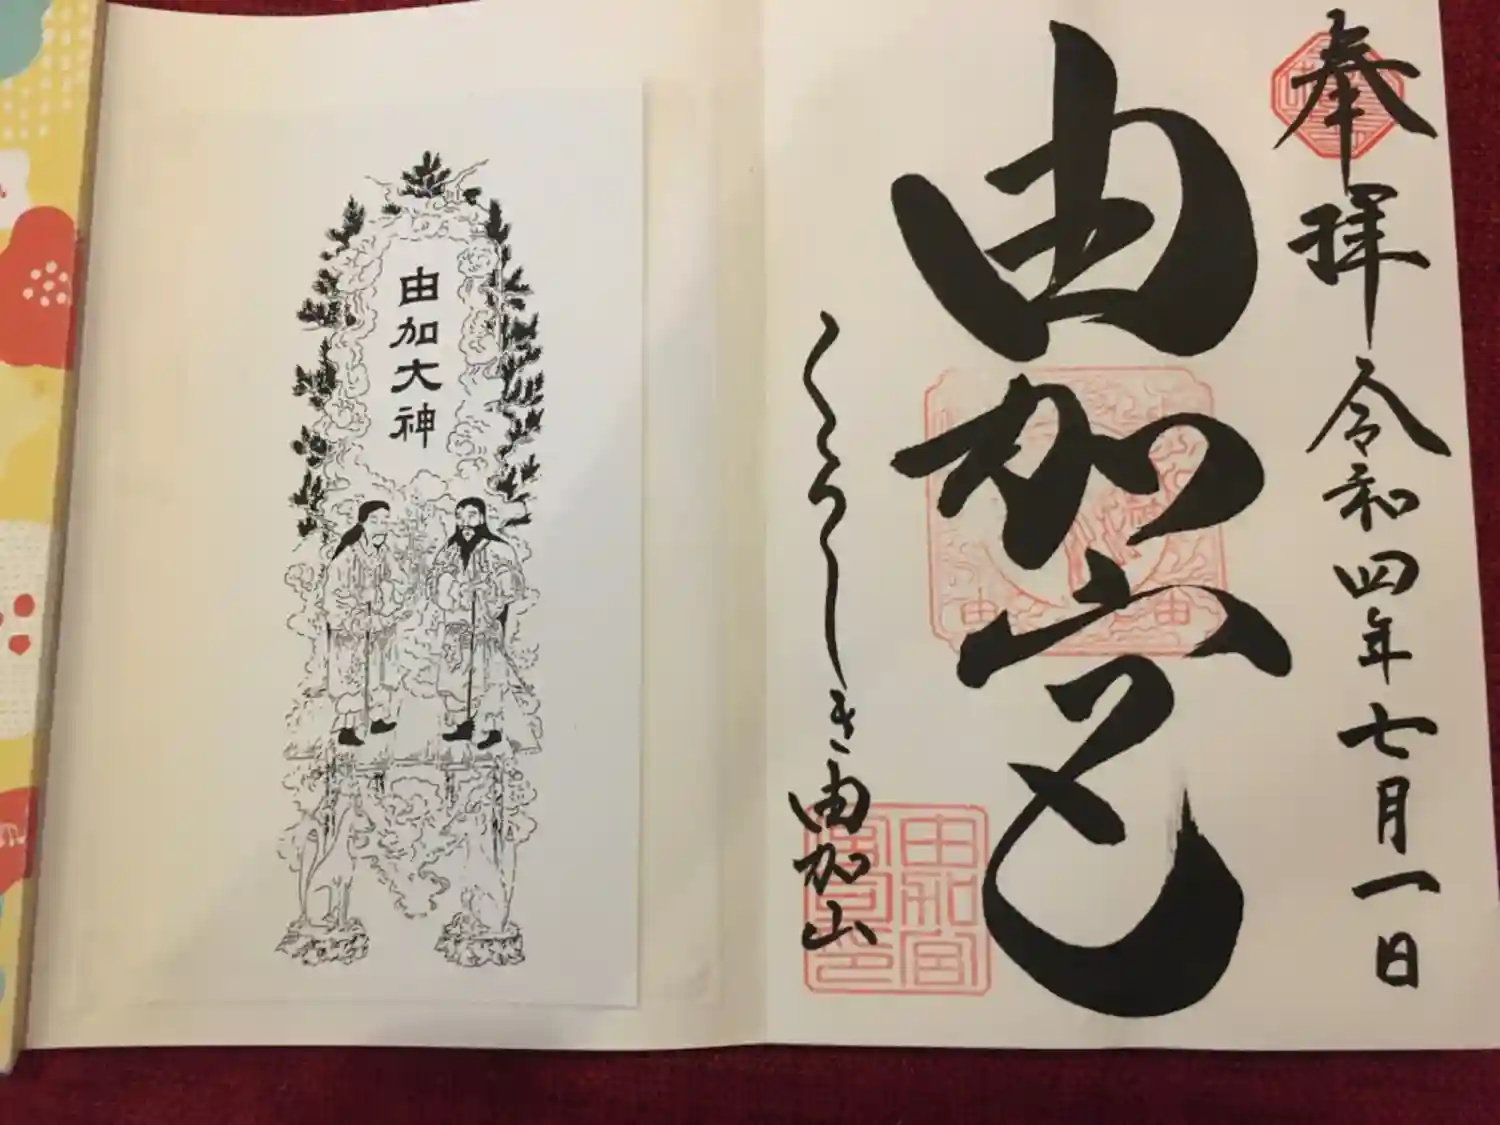 奉拝 令和四年七月一日
由加宮
くらしき由加山
由加宮
由加大神